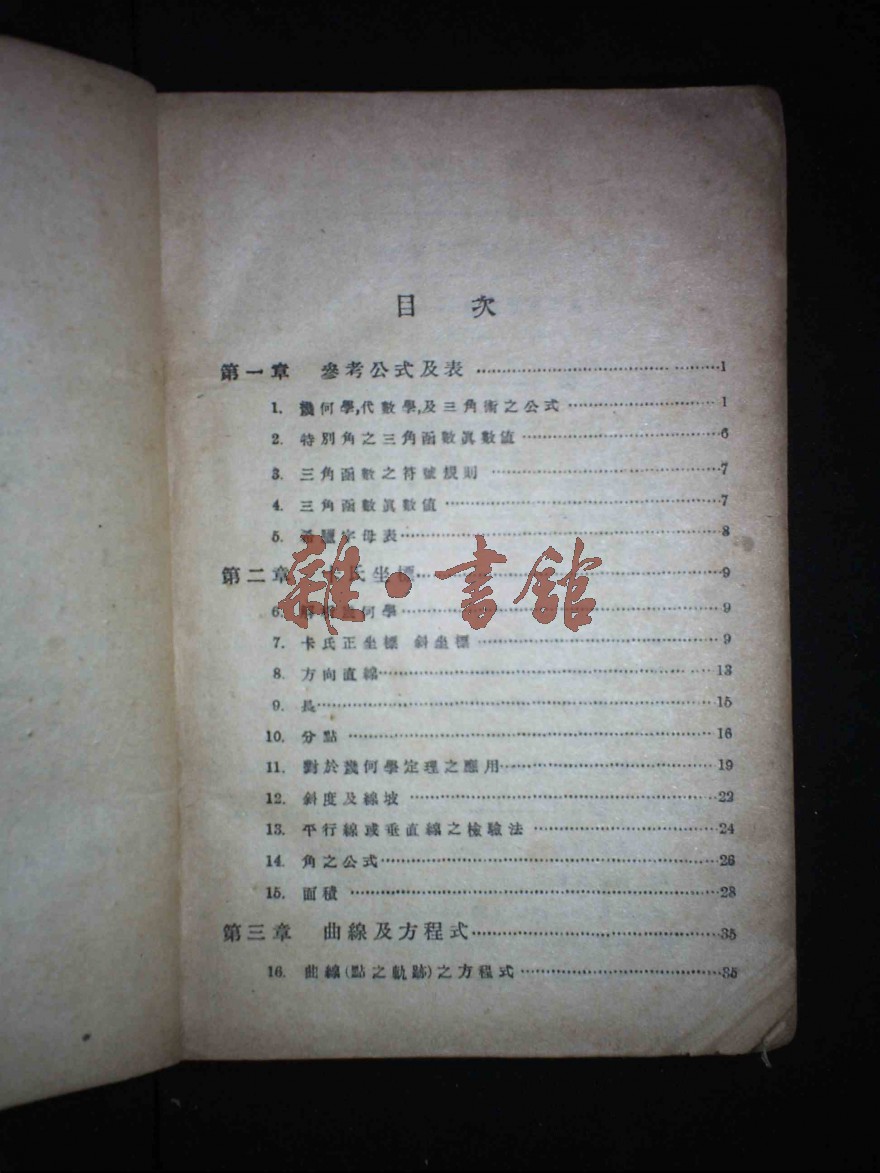 目 次
第一章 參考公式及表 1
1. 幾何學,代數學,及三角術之公式 1
2. 特別角之三角函數眞數值 6
3. 三角函數之符號規則 7
4. 三角函數眞數值 7
5. 希臘字母表 8
第二章 卡氏坐標 9
6. 何學 9
7. 卡氏正坐標 斜坐標 9
8. 方向直線 13
9. 長 15
10. 分點 16
11. 對於幾何學定理之應用 19
12. 斜度及線坡 22
13. 平行線或垂直線之檢驗法 24
14. 角之公式 26
15. 面積 28
第三章 曲線及方程式 35
16. 曲線(點之軌跡)之方程式 35
雜·書館